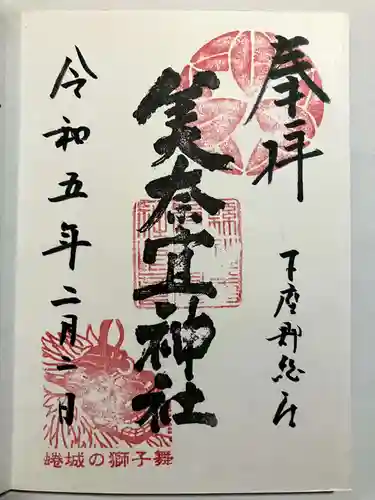 奉拝
下座郡総社
美奈宜神社
令和五年二月二日
蜷城の獅子舞